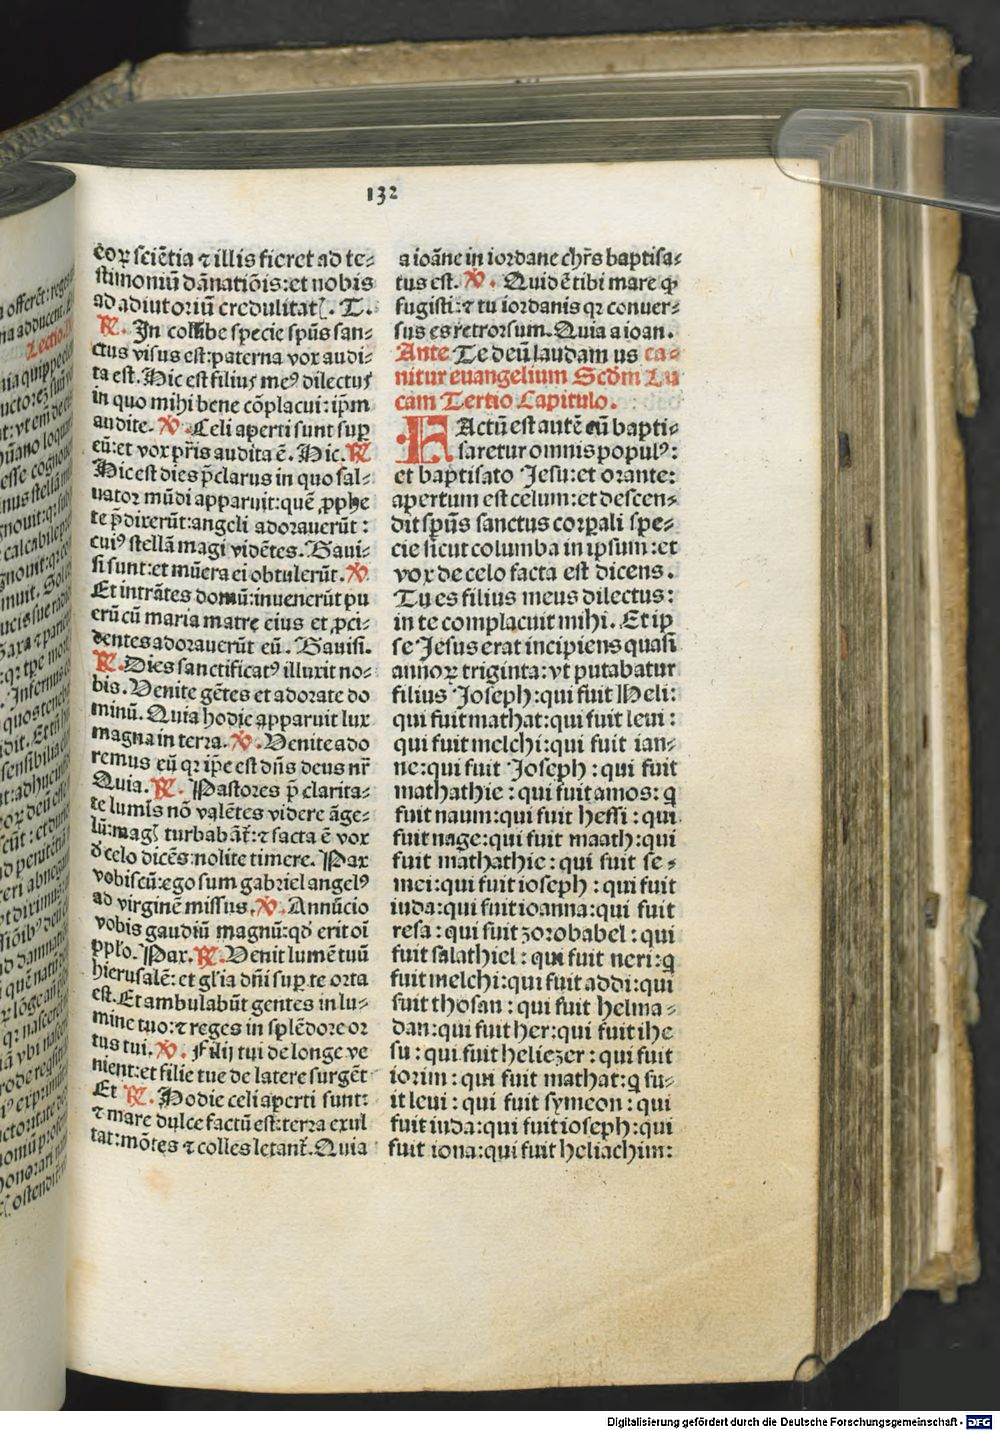 132
eoꝝ sciētia ⁊ illis fieret ad te⸗
stimoniū dānatiōis: et nobis
ad adiutoriū credulitatꝭ. T.
℟. In colūbe specie spūs san⸗
ctus visus est: paterna vox audi⸗
ta est. Hic est filius meꝰ dilectus
in quo mihi bene cōplacui: ipm̄
audite. ℣. Celi aperti sunt suꝑ
eū: et vox pr̄is audita ē. Hic. ℟
Hic est dies p̄clarus in quo sal⸗
uator mūdi apparuit: quē ꝓphe
te p̄dixerūt: angeli adorauerūt:
cuiꝰ stellā magi vidētes. Gaui⸗
si sunt: et mūera ei obtulerūt. ℣.
Et intrātes domū: inuenerūt pu
erū cū maria matre eius et ꝓci⸗
dentes adorauerūt eū. Gauisi.
℟. Dies sanctificatꝰ illuxit no⸗
bis. Venite gētes et adorate do
minū. Quia hodie apparuit lux
magna in terra. ℣. Venite ado
remus eū qꝛ ip̄e est dn̄s deus nr̄
Quia. ℟. Pastores p̄ clarita⸗
te lumīs nō valētes videre āge⸗
lū: magꝭ turbabāt̄: ⁊ facta ē vox
d̄ celo dicēs: nolite timere. Pax
vobiscū: ego sum gabriel angelꝰ
ad virginē missus. ℣. Annūcio
vobis gaudiū magnū: qd̄ erit oī
pplo. Pax. ℟. Venit lumē tuū
hierusalē: et gl̄ia dn̄i suꝑ te orta
est. Et ambulabūt gentes in lu⸗
mine tuo: ⁊ reges in splēdore or
tus tui. ℣. Filij tui de longe ve
nient: et filie tue de latere surgēt
Et ℟. Hodie celi aperti sunt:
⁊ mare dulce factū est: terra exul
tat: mōtes ⁊ colles letant̄. Quia
a ioāne in iordane chr̄s baptisa⸗
tus est. ℣. Quid ē tibi mare ꝙ
fugisti: ⁊ tu iordanis qꝛ conuer⸗
sus es retrorsum. Quia a ioan.
Ante Te deū laudam us ca⸗
nitur euangelium Scdm̄ Lu
cam Tertio Capitulo.
FActū est autē cū bapti⸗
saretur omnis populꝰ:
et baptisato Jesu: et orante:
apertum est celum: et descen⸗
dit spūs sanctus corꝑali spe⸗
cie sicut columba in ipsum: et
vox de celo facta est dicens.
Tu es filius meus dilectus:
in te complacuit mihi. Et ip
se Jesus erat incipiens quasi
annoꝝ triginta: vt putabatur
filius Joseph: qui fuit Heli:
qui fuit mathat: qui fuit leui:
qui fuit melchi: qui fuit ian⸗
ne: qui fuit Joseph: qui fuit
mathathie: qui fuit amos: q
fuit naum: qui fuit hessi: qui
fuit nage: qui fuit maath: qui
fuit mathathie: qui fuit se⸗
mei: qui fuit ioseph: qui fuit
iuda: qui fuit ioanna: qui fuit
resa: qui fuit zorobabel: qui
fuit salathiel: qui fuit neri: q
fuit melchi: qui fuit addi: qui
fuit thosan: qui fuit helma⸗
dan: qui fuit her: qui fuit ihe
su: qui fuit heliezer: qui fuit
iorim: qui fuit mathat: q fu⸗
it leui: qui fuit symeon: qui
fuit iuda: qui fuit ioseph: qui
fuit iona: qui fuit heliachim:
Digitalisierung gefördert durch die Deutsche Forschungsgemeinschaft - DFG